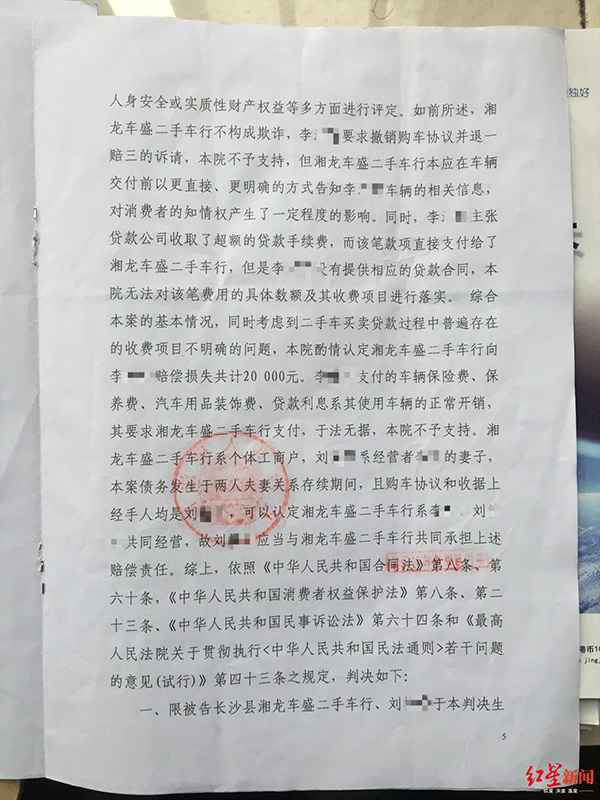 人身安全或实质性财产权益等多方面进行评定。如前所述，湘
龙车盛二手车行不构成欺诈，李 要求撤销购车协议并退一
赔三的诉请，本院不予支持，但湘龙车盛二手车行本应在车辆
交付前以更直接、更明确的方式告知李 车辆的相关信息，
对消费者的知情权产生了一定程度的影响。同时，李 主张
贷款公司收取了超额的贷款手续费，而该笔款项直接支付给了
湘龙车盛二手车行，但是李 没有提供相应的贷款合同，本
院无法对该笔费用的具体数额及其收费项目进行落实。 综合
本案的基本情况，同时考虑到二手车买卖贷款过程中普遍存在
的收费项目不明确的问题，本院酌情认定湘龙车盛二手车行向
李 赔偿损失共计20 000元。李 支付的车辆保险费、保
养费、汽车用品装饰费、贷款利息系其使用车辆的正常开销，
其要求湘龙车盛二手车行支付，于法无据，本院不予支持。湘
龙车盛二手车行系个体工商户，刘 系经营者李 的妻子，
本案债务发生于两人夫妻关系存续期间，且购车协议和收据上
经手人均是刘 ，可以认定湘龙车盛二手车行系李 、刘
共同经营，故刘 应当与湘龙车盛二手车行共同承担上述
赔偿责任。综上，依照《中华人民共和国合同法》第八条、第
六十条，《中华人民共和国消费者权益保护法》第八条、第二
十三条、《中华人民共和国民事诉讼法》第六十四条和《最高
人民法院关于贯彻执行<中华人民共和国民法通则>若干问题
的意见(试行)》第四十三条之规定，判决如下：
一、限被告长沙县湘龙车盛二手车行、刘 于本判决生
5
独好
港市10
www.jing
红星新闻
深度 态度 温度